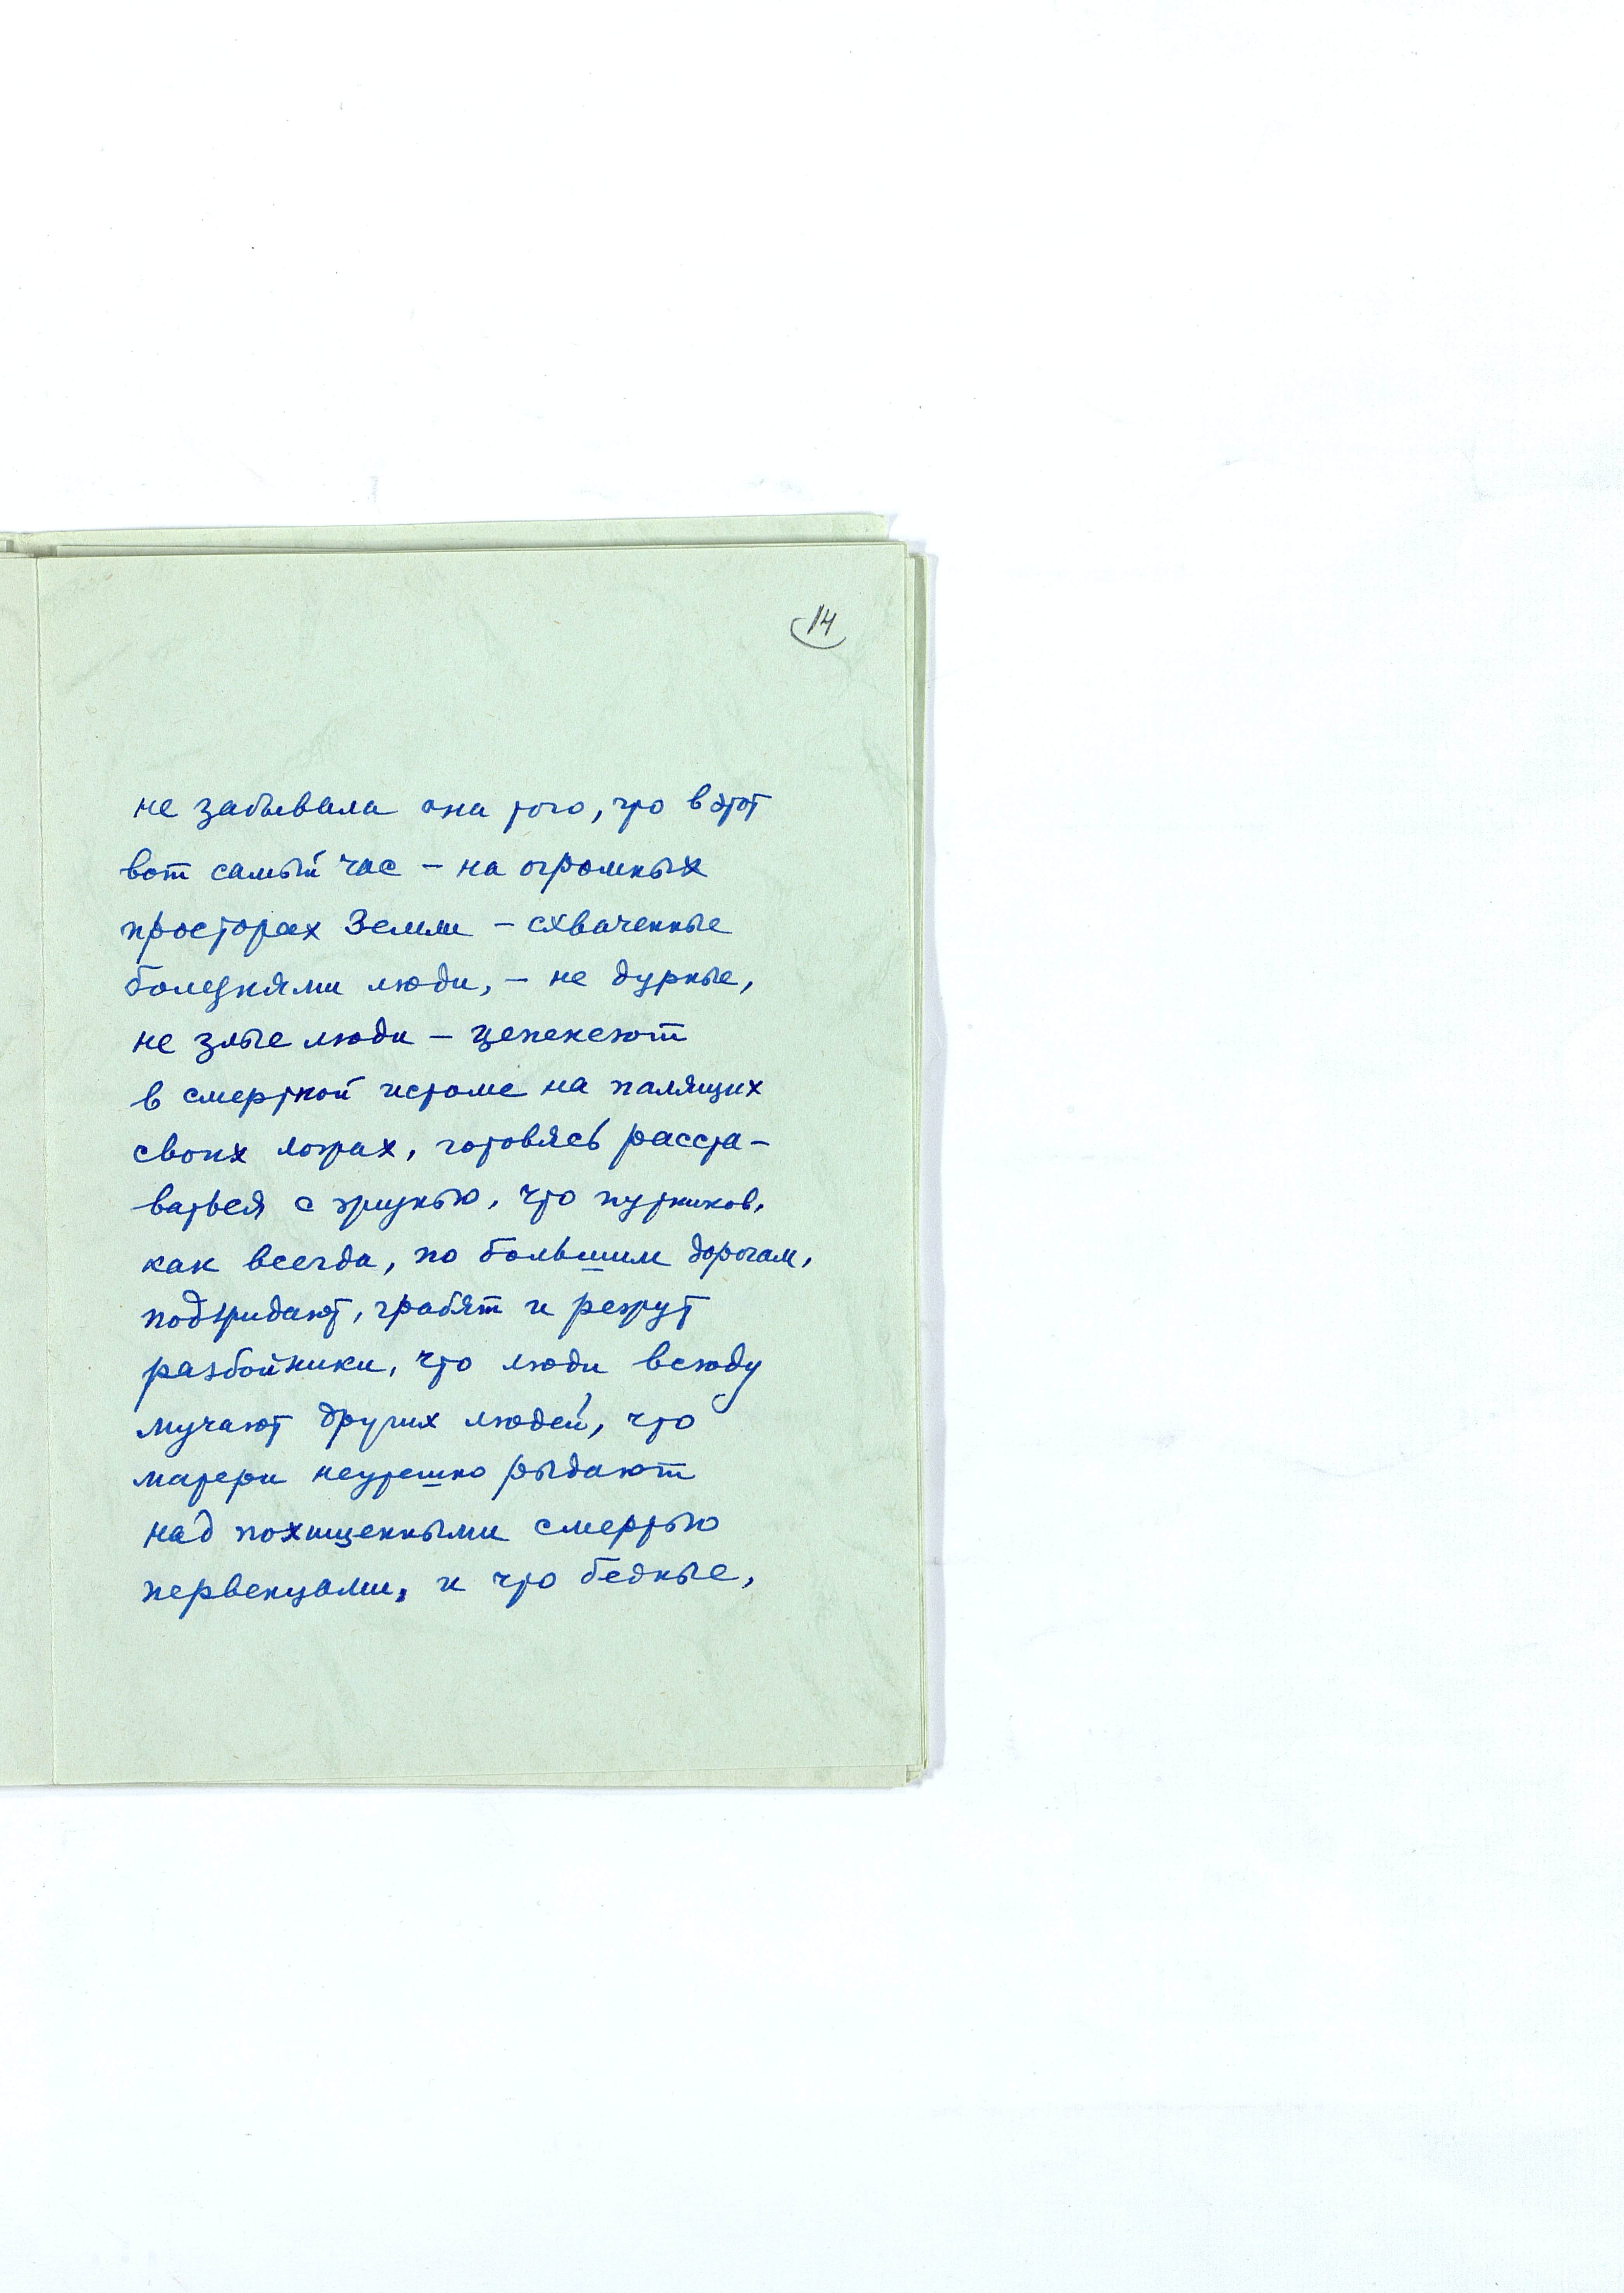 14
не забывала она того, что в этот
вот самый час – на огромных
просторах Земли – схваченные
болезнями люди, – не дурные,
не злые люди – цепенеют
в смертной истоме на палящих
своих ложах, готовясь расста-
ваться с жизнью, что путников,
как всегда, по большим дорогам,
поджидают, грабят и режут
разбойники, что люди всюду
мучают других людей, что
матери неутешно рыдают
над похищенными смертью
первенцами, и что бедные,